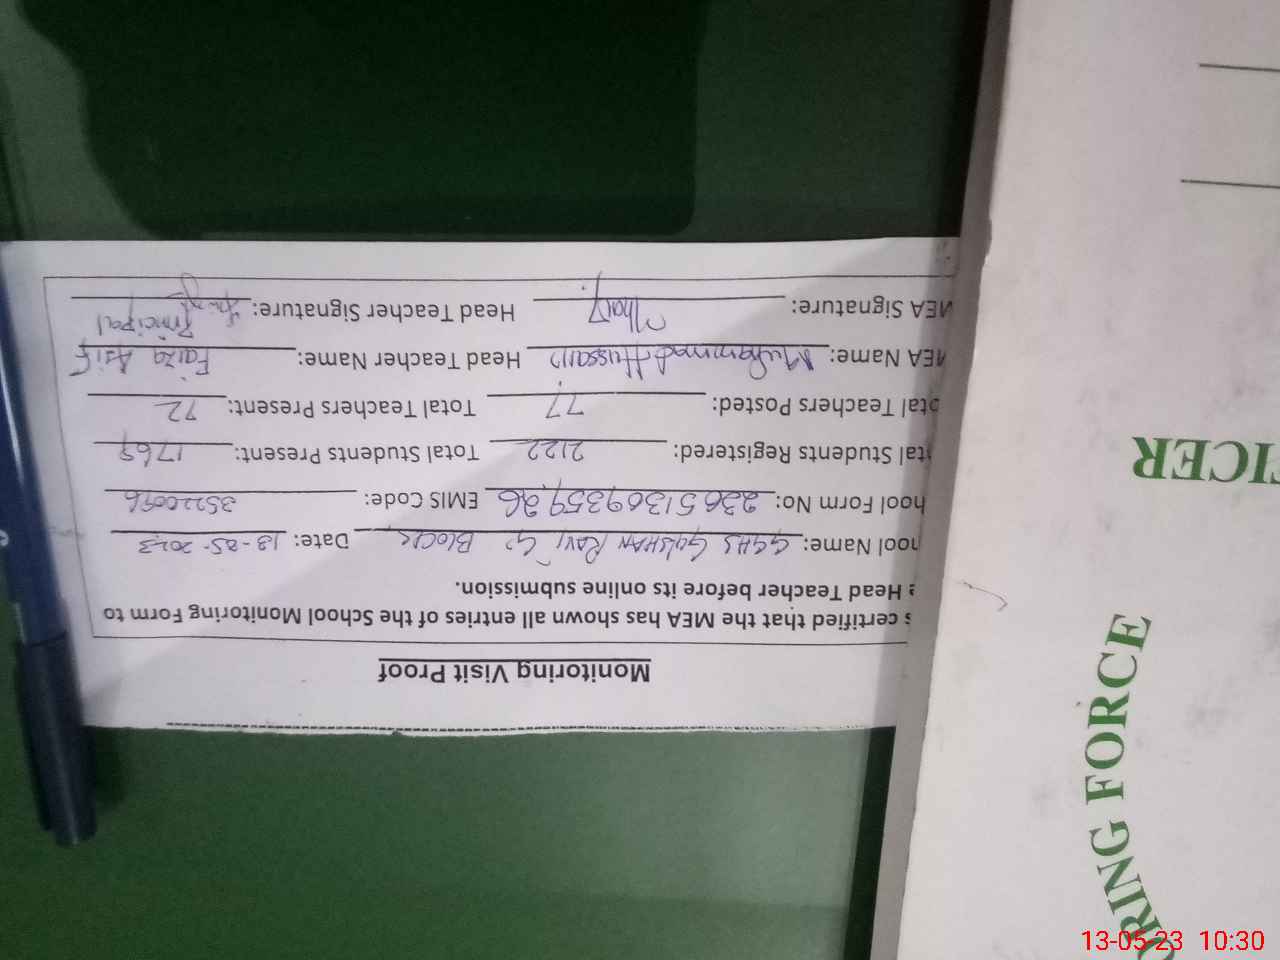 Monitoring Visit Proof
s certified that the MEA has shown all entries of the School Monitoring Form to
e Head Teacher before its online submission.
hool Name: GGHS GULSHAN RAVI G BLOCK Date: 13-05-2023
hool Form No: EMIS Code:
tal Students Registered: 2122 Total Students Present: 1769
otal Teachers Posted: 77 Total Teachers Present: 72
MEA Name: Muhammad Hussain Head Teacher Name: Faiza Asif
Principal
MEA Signature: Head Teacher Signature:
ICER
ORING FORCE
13-05-23 10:30